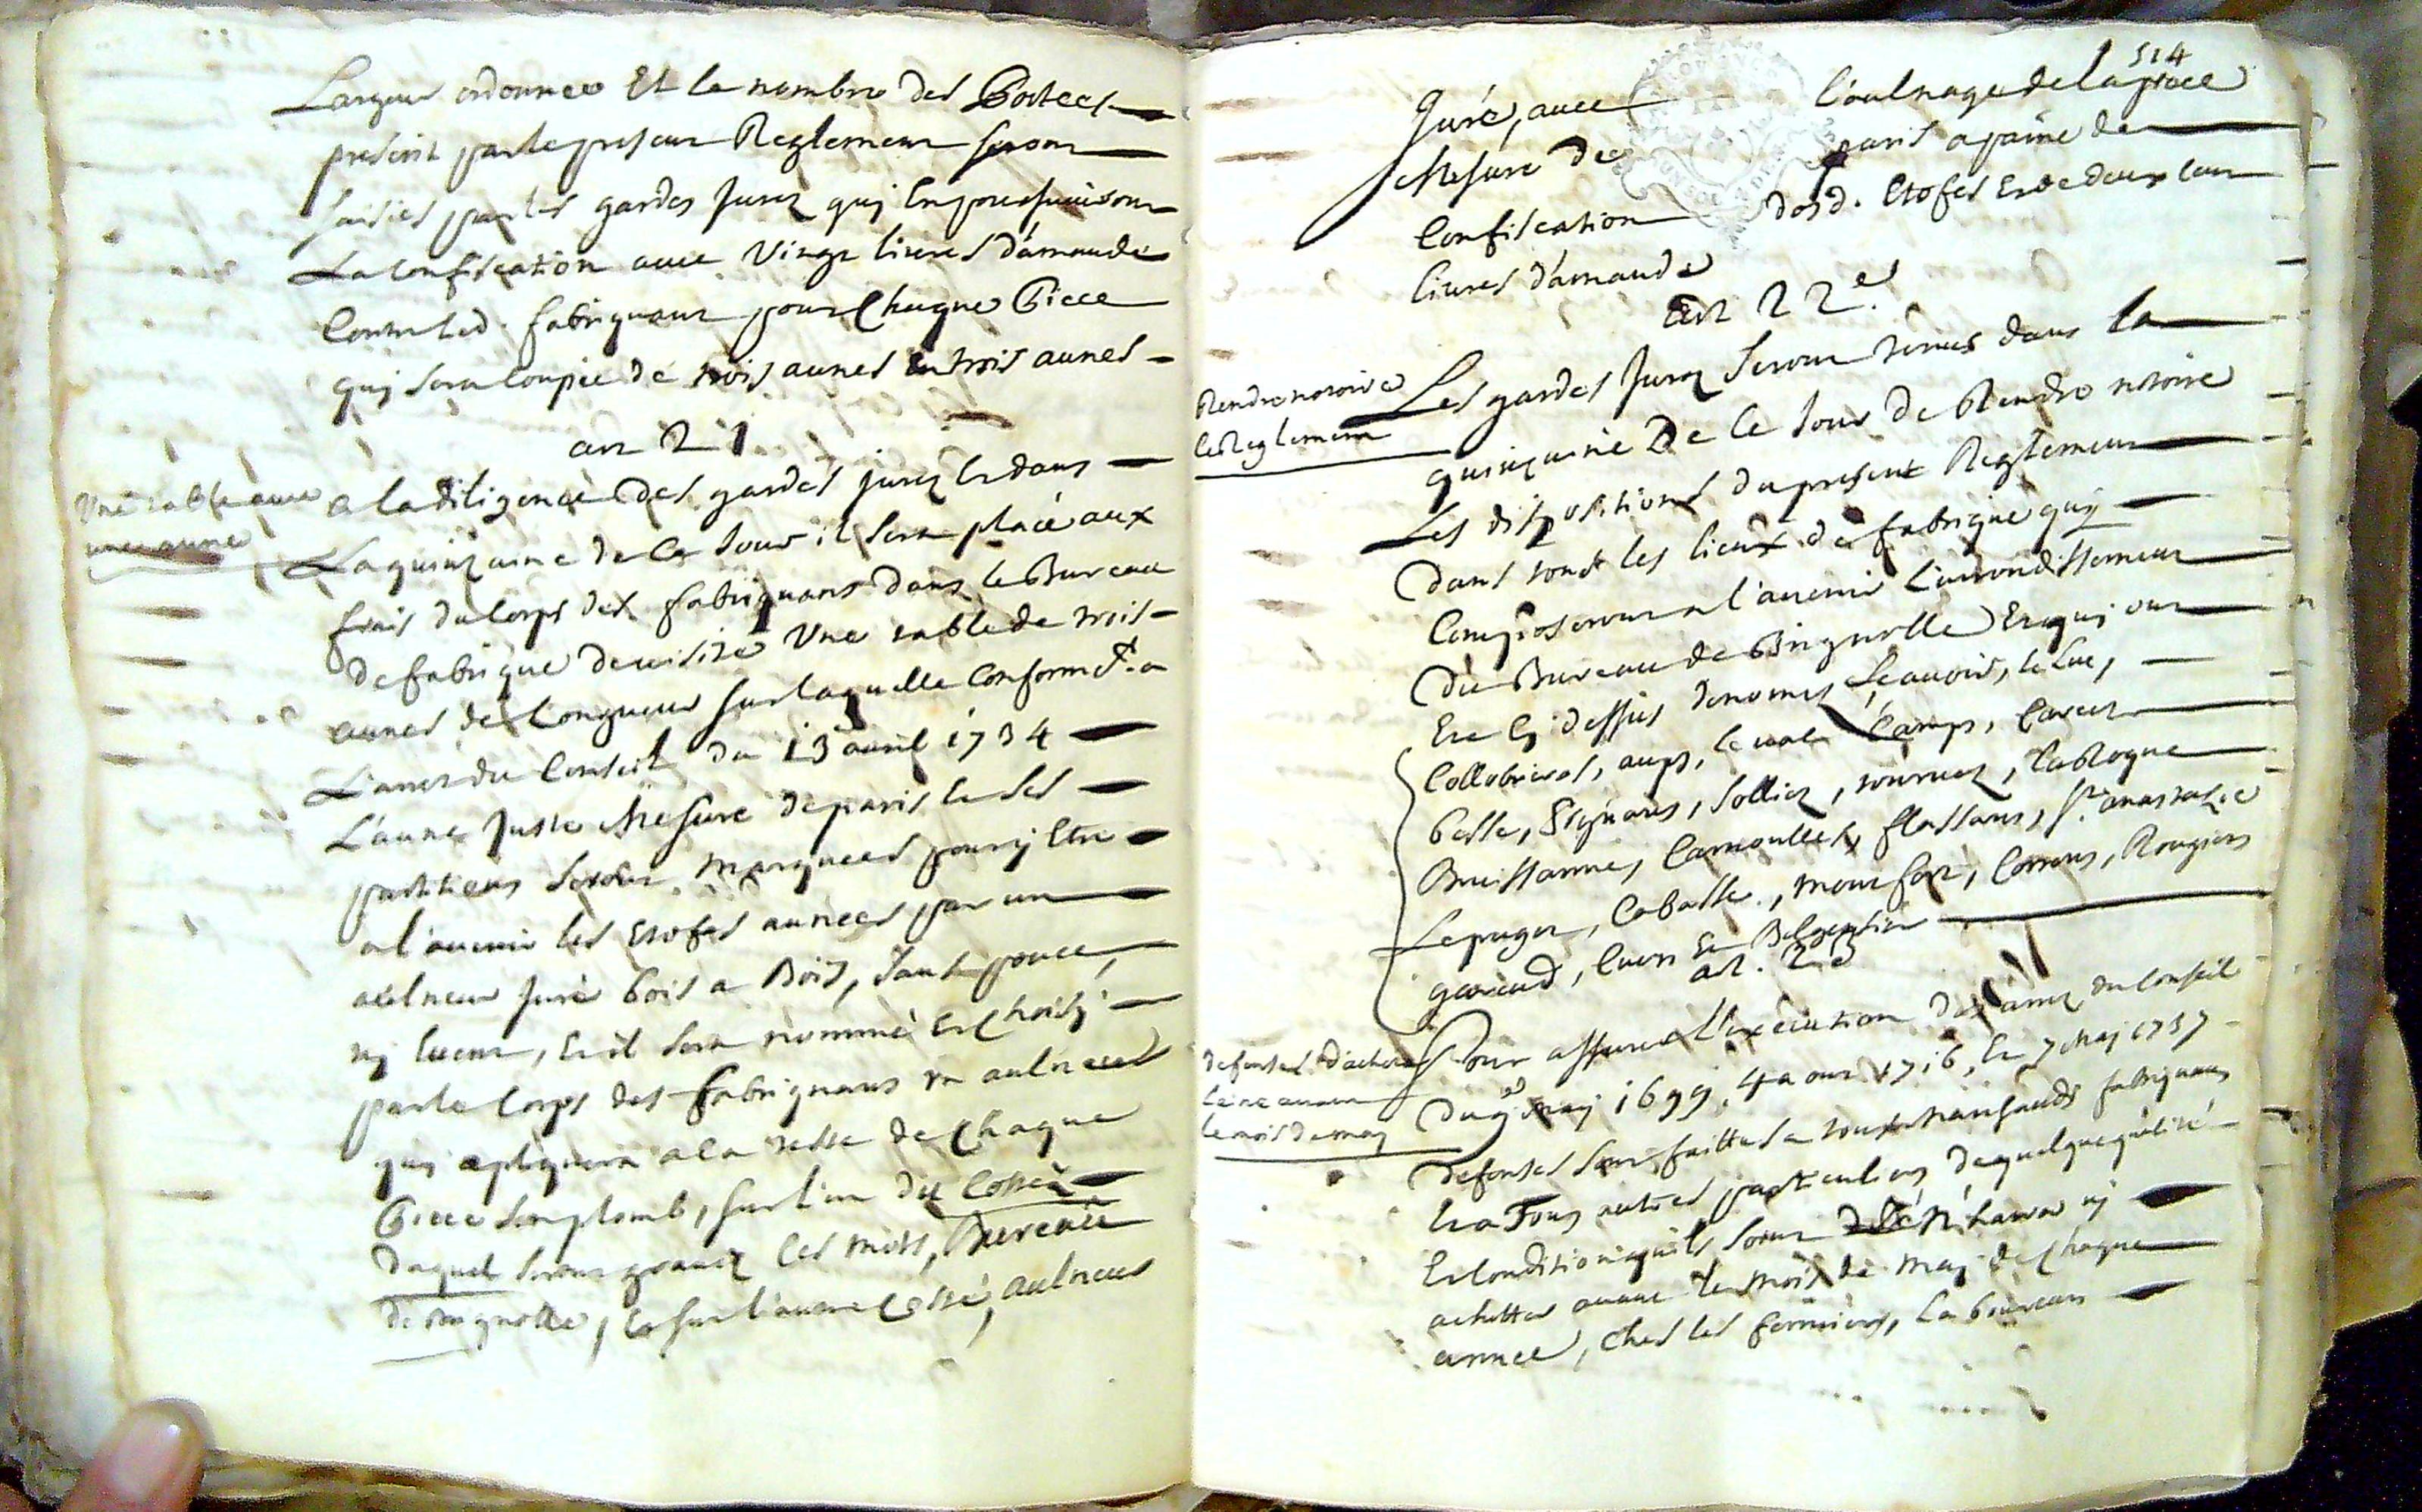 Largeur ordonnee Et le nombre des Portees
prescrit par le present Reglement seront
saisies par les gardes Jurez quj En poursuivront
La confiscation avec Vingt livres d'amande
Contre led. fabriquant pour Chaque Piece
quj sera Coupée de trois aunes en trois aunes
art 21
Une table avec
une aune
a la diligence des gardes jurez Et dans
La quinzaine de Ce Jour il sera placé aux
frais du Corps des fabriquans dans le Bureau
de fabrique de visite Une table de trois
aunes de Longueur sur laquelle Conformet. a
L'arret du Conseil du 13 avril 1734
L'aune Juste Mesure de paris Et ses
partitions seront marquées pour y Etre
a l'avenir les Etofes aunees par un
aulneur Juré bois a Bois, sans pouce,
nj Event, Et il sera nommé Et Choisj
par le Corps des fabriquans un aulneur
quj apliquera a la teste de Chaque
Piece son plomb, sur l'un des Costés
duquel seront gravez les mots, Bureau
de Brignolle, Et sur l'autre Costé, aulneur
514
Juré, avec l'aulnage de la piece
Mesure de paris a paine de
Confiscation desd. Etofes Et de deux Cent
livres d'amande
art 22e.
Rendre notoire
le Reglement
Les gardes Jurez seront tenus dans la
quinzaine De Ce Jour de Rendre notoire
Les dispositions du present Reglement
dans tous les lieux de fabrique quj
Composeront a l'avenir L'arrondissement
du Bureau de Brignolle Et quj ont
Eté Cj dessus denomés, Scavoir, le Luc,
Collobrieres, aups, le val, Camps, Carcez
besse, Eignans, Sollier, tourvez, la Roque
Brussanne, Carnoulles, flassans, Ste. anastazie
Le puget, Cabasse, mont fort, Correns, Rougiers
gareoud, Cuers Et Belgentier
art. 23
defenses d'acheter
laine avant
le mois de may
Pour assurer L'execution des arrets du Conseil
du 9e may 1699, 4 aout 1716, Et 7 May 1737
defenses sont faittes a tous marchands fabriquans
Et a Tous autres particuliers de quelque qualité
Et Condition qu'ils soient d'enharrer nj
achetter avant le mois de may de Chaque
année, Ches les fermiers, Laboureurs